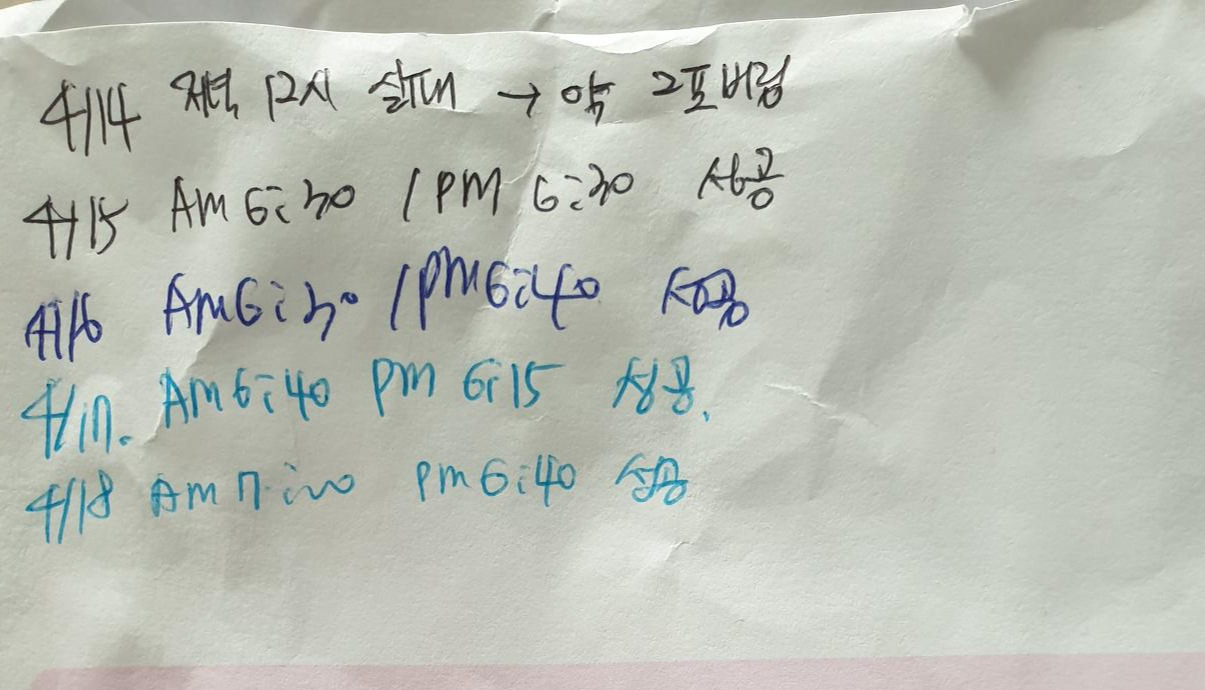 4/14 저녁 12시 실패 → 약 2포 버림
4/15 AM 6:30 / PM 6:30 성공
4/16 AM 6:30 / PM 6:40 성공
4/17. AM 6:40 PM 6:15 성공.
4/18 AM 7:20 PM 6:40 성공